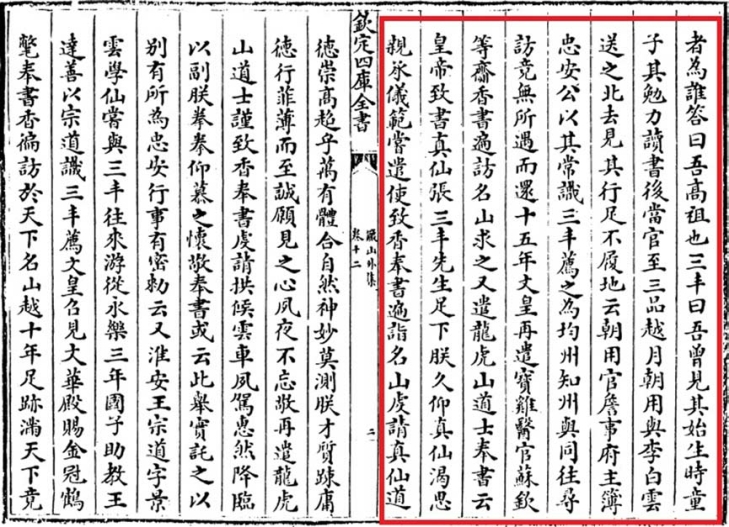 者為誰答曰吾高祖也三丰曰吾曾見其始生時童
子其勉力讀書後當官至三品越月朝用與李白雲
送之北去見其行足不履地云朝用官詹事府主簿
忠安公以其常識三丰薦之為均州知州與同往尋
訪竟無所遇而還十五年文皇再遣寶雞醫官蘇欽
等齋香書遍訪名山求之又遣龍虎山道士奉書云
皇帝致書真仙張三丰先生足下朕久仰真仙渴思
親承儀範嘗遣使致香奉書遍詣名山虔請真仙道
欽定四庫全書
儼山外集
卷十二
二
徳崇高超乎萬有體合自然神妙莫測朕才質踈庸
徳行菲薄而至誠願見之心夙夜不忘敬再遣龍虎
山道士謹致香奉書虔請拱候雲車夙駕惠然降臨
以副朕拳拳仰慕之懷敬奉書或云此舉實託之以
别有所為忠安行事有密勅云又淮安王宗道字景
雲學仙嘗與三丰往來游從永樂三年國子助教王
達善以宗道識三丰薦文皇召見文華殿賜金冠鶴
氅奉書香徧訪於天下名山越十年足跡滿天下竟